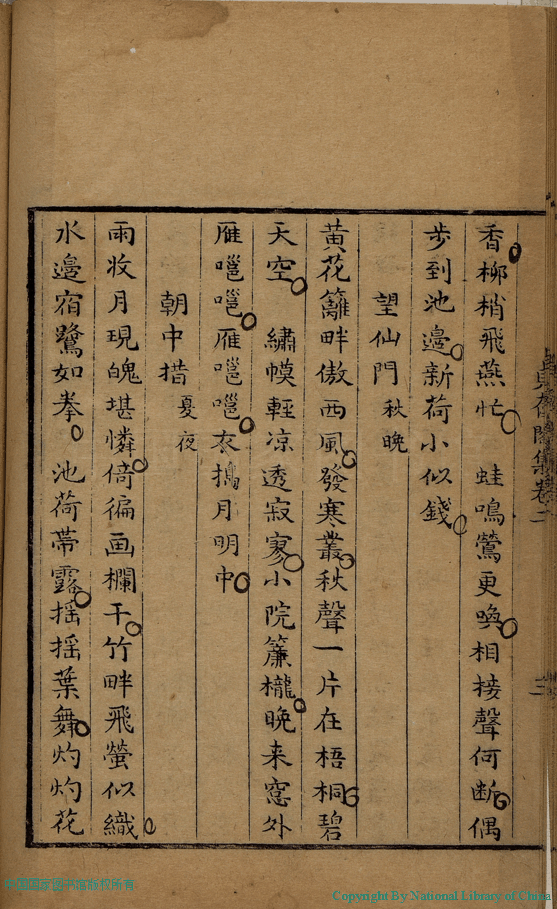 香柳梢飛燕忙　蛙鳴鶯更喚相接聲何斷偶
步到池邊新荷小似錢
望仙門秋晚
黃花籬畔傲西風發寒叢秋聲一片在梧桐碧
天空　繡幙輕凉透寂寥小院簾櫳晚来窓外
雁嗈嗈雁嗈嗈衣搗月明中
朝中措夏夜
雨收月現魄堪憐倚徧画欄干竹畔飛螢似織
水邊宿鷺如拳　池荷帯露揺揺葉舞灼灼花
集卷二
二
Copyright By National Library of China